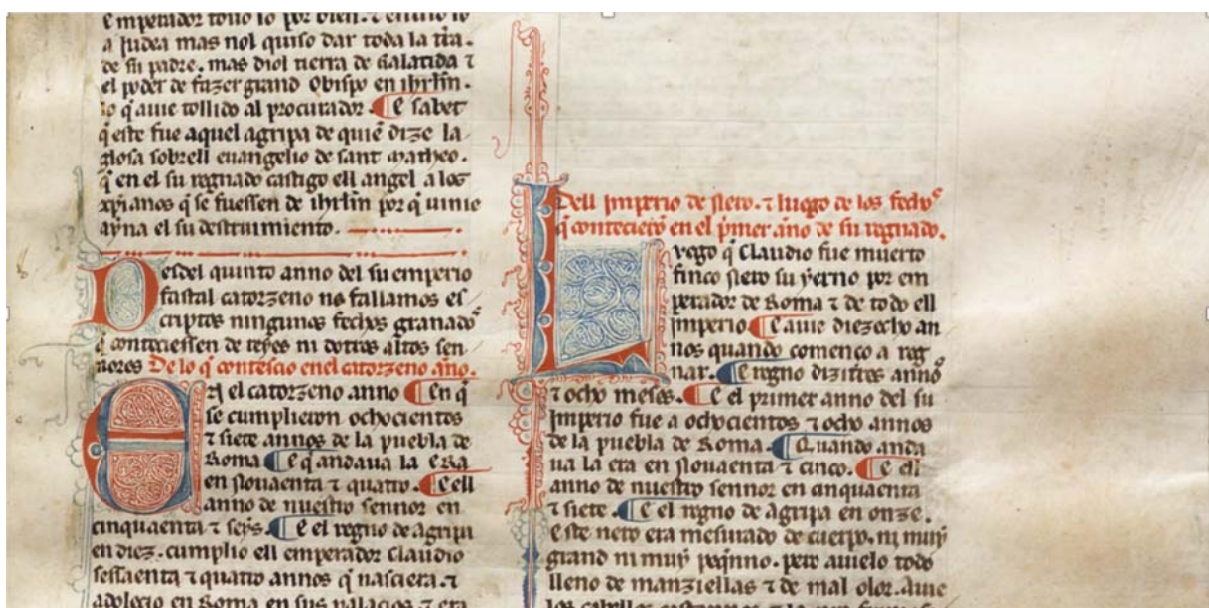 emperador touo lo por bien. ⁊ enuio lo
a Judea mas nol quiso dar toda la tr̃ra.
de su padre. mas diol tierra de Galatida ⁊
el poder de fazer grand Obispo en ihrlm̃.
lo q̃ auie tollido al procurador. E sabet
q̃ este fue aquel agripa de quiẽ dize la
glosa sobrell euangelio de sant Matheo.
q̃ en el su regnado castigo ell angel a los
xp̃ianos q̃ se fuessen de ihrlm̃ por q̃ uinie
ayna el su destruimiento.
Desdel quinto anno del su emperio
fastal catorzeno no fallamos es
criptos ningunos fechos granados
q̃ conteciessen de reyes ni dotros altos sen
nores De lo q̃ contescio en el catorzeno año.
En el catorzeno anno En q̃
se cumplieron ochocientos
⁊ siete annos de la puebla de
Roma E q̃ andaua la Era
en Nouaenta ⁊ quatro. E ell
anno de nuestro sennor en
cinquaenta ⁊ seys. E el regno de Agripa
en diez. cumplio ell emperador Claudio
sessaenta ⁊ quatro annos q̃ nasciera. ⁊
adolecio en Roma en sus palacios ⁊ era
Dell Imperio de Nero. ⁊ luego de los fechos
q̃ contecierõ en el p̃mer año de su regnado.
Luego q̃ Claudio fue muerto
finco Nero su yerno por em
perador de Roma ⁊ de todo ell
Imperio E auie diezecho an
nos quando començo a reg
nar. E regno dizitres annos
⁊ ocho meses. E el primer anno del su
Imperio fue a ochocientos ⁊ ocho annos
de la puebla de Roma. Quando anda
ua la era en Nouaenta ⁊ cinco. E ell
anno de nuestro sennor en cinquaenta
⁊ siete. E el regno de Agripa en onze.
Este nero era mesurado de cuerpo. ni muy
grand ni muy peq̃nno. pero auielo todo
lleno de manziellas ⁊ de mal olor. Auie
los cabellos